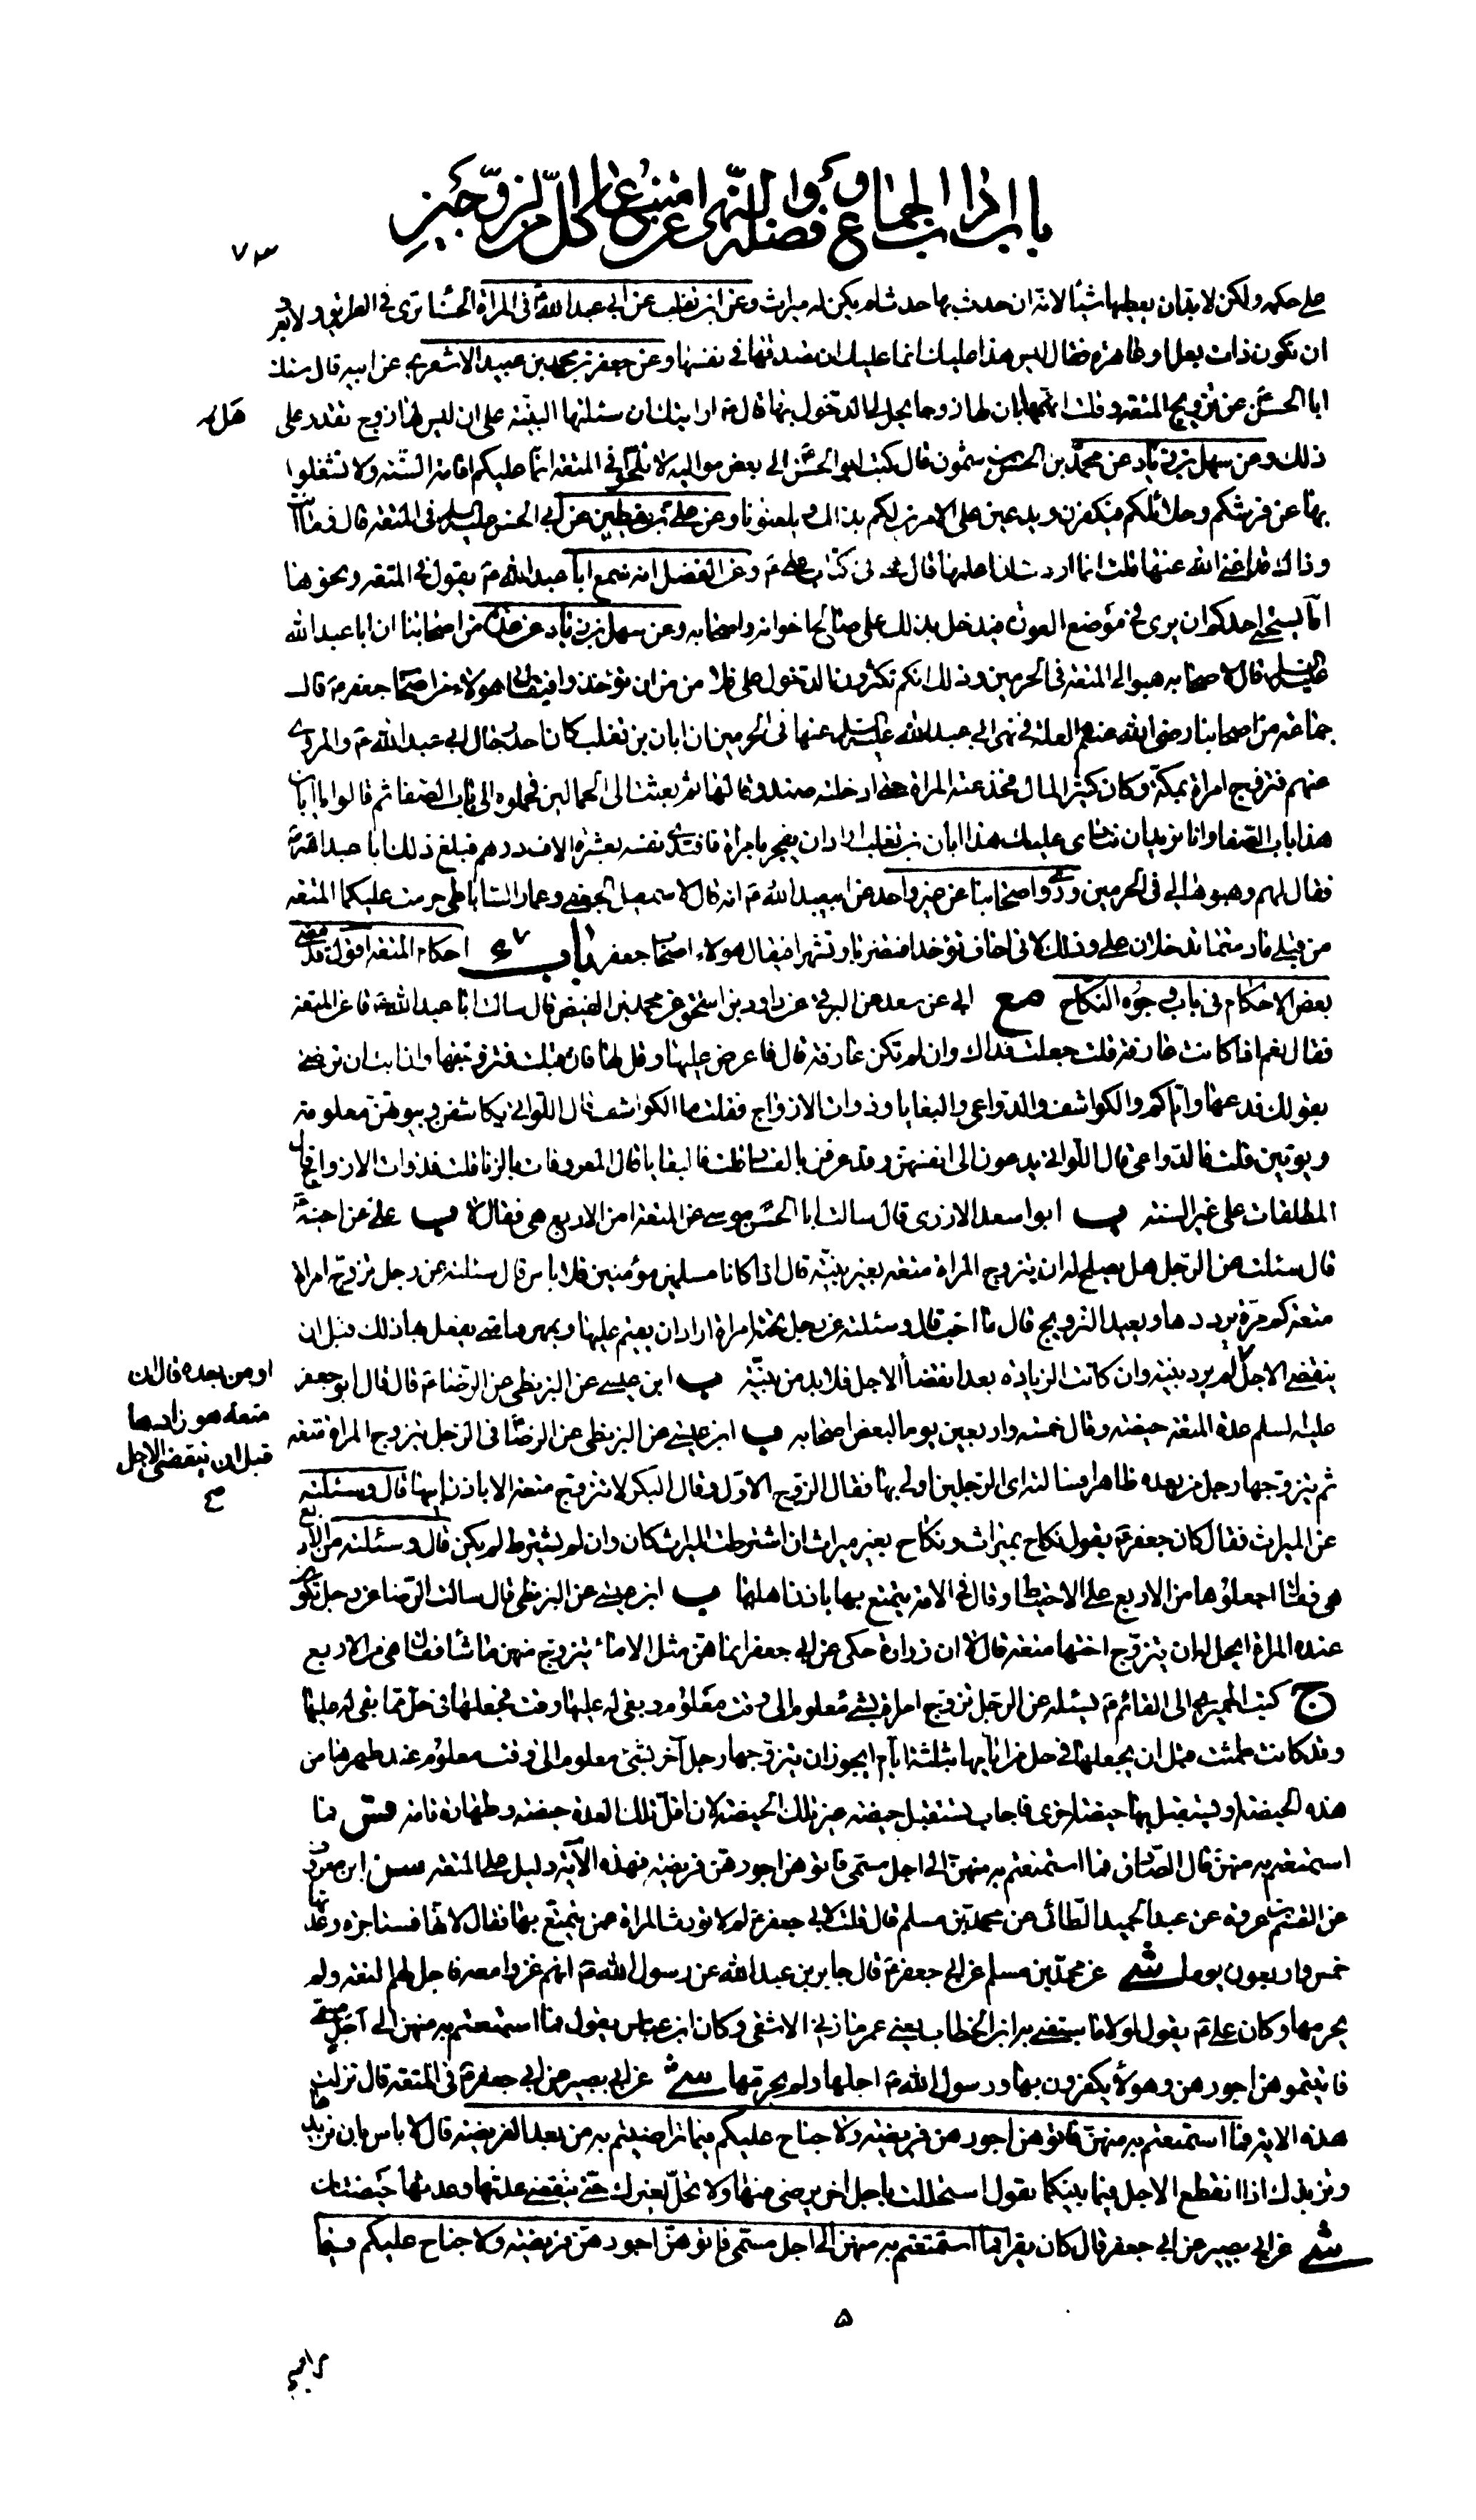 باب اداب الجماع وفضله والنهى عن امتناع كل من الزوجين
٧٣
على حكمه ولكن لا بد ان يعطيها شيئا لانه ان حدث بها حدث لم يكن له ميراث وعن ابن تغلب عن ابى عبد الله ع فى المراة الحسناء ترى فى الطريق ولا يعرف
ان تكون ذات بعل او عاهرة فقال ليس هذا عليك انما عليك ان تصدقها فى نفسها وعن جعفر بن محمد بن عبيد الاشعرى عن ابيه قال سئلت
ابا الحسن ع عن تزويج المتعة وقلت اتهمها بان لها زوجا يحل لى الدخول بها قال ع ارايتك ان سئلتها البينة على ان ليس لها زوج تقدر على
هل
ذلك وعن سهل بن زياد عن محمد بن الحسن بن شمون قال كتب ابو الحسن ع الى بعض مواليه لا تلحوا فى المتعة انما عليكم اقامة السنة ولا تشغلوا
بها عن فرشكم وحلائلكم فيكفرن ويدعين على الامرين لكم بذلك ويلعنونا وعن على بن يقطين عن ابى الحسن عليه السلم فى المتعة قال وما انت
وذاك قد اغنى الله عنها قلت انما اردت ان اعلمها قال هى فى كتاب على ع وعن المفضل انه سمع ابا عبد الله ع يقول فى المتعة ونحوها
اما يستحيى احدكم ان يرى فى موضع العورة فيدخل بذلك على صالحى اخوانه واصحابه وعن سهل بن زياد عن عدة من اصحابنا ان ابا عبد الله
عليه السلم قال لاصحابه هبوا لى المتعة فى الحرمين وذلك انكم تكثرون الدخول على فلا امن من ان تؤخذوا فيقال هؤلاء من اصحاب جعفر ع قال
جماعة من اصحابنا رضى الله عنهم العلة فى نهى ابى عبد الله عليه السلم عنها فى الحرمين ان ابان بن تغلب كان احد رجال ابى عبد الله ع والمروى
عنهم فتزوج امراة بمكة وكان كثير المال فخدعته المراة حتى ادخلته صندوقا لها ثم بعثت الى الحمالين فحملوه الى باب الصفا ثم قالوا يا ابان
هذا باب الصفا وانا نريد ان ننادى عليك هذا ابان بن تغلب اراد ان يفجر بامراة فافتدى نفسه بعشرة الاف درهم فبلغ ذلك ابا عبد الله ع
فقال لهم وهبوها لى فى الحرمين وروى اصحابنا عن غير واحد عن ابى عبد الله ع انه قال لاسمعيل الجعفى وعمار الساباطى حرمت عليكما المتعة
من قبلى ما دمتما تدخلان على وذلك لانى اخاف تؤخذا فتضربا وتشهرا فيقال هؤلاء اصحاب جعفر باب احكام المتعة اقول قد مضى
بعض الاحكام فى باب وجوه النكاح مع ابى عن سعد عن البرقى عن داود بن اسحق عن محمد بن الفيض قال سالت ابا عبد الله ع عن المتعة
فقال نعم اذا كانت عارفة قلت جعلت فداك وان لم تكن عارفة قال فاعرض عليها وقل لها فان قبلت فتزوجها وان ابت ان ترضى
بقولك فدعها واياكم والكواشف والدواعى والبغايا وذوات الازواج فقلت ما الكواشف قال اللواتى يكاشفن وبيوتهن معلومة
ويؤتين قلت فالدواعى قال اللواتى يدعون الى انفسهن وقد عرفن بالفساد قلت فالبغايا قال المعروفات بالزنا قلت فذوات الازواج قال
المطلقات على غير السنة ب ابو اسعد الازدى قال سالت ابا الحسن موسى عن المتعة امن الاربع هى فقال لا ب على عن اخيه ع
قال سئلت عن الرجل هل يصلح له ان يتزوج المراة متعة بغير بينة قال اذا كانا مسلمين مؤمنين فلا باس قال سئلته عن رجل تزوج امراة
متعة كم مرة يرددها ويعيد التزويج قال ما احب قال وسئلته عن رجل تحته امراة اراد ان يقيم عليها وبمهر متى يفعل بها ذلك قبل ان
ينقضى الاجل لم يرد بينة وان كانت الزيادة بعد انقضاء الاجل فلا بد من بينة ب ابن عيسى عن البزنطى عن الرضا ع قال قال ابو جعفر
او من بعده قال ان
متعة هو زادها
قبل ان ينقضى الاجل
صح
عليه السلم عدة المتعة حيضة وقال خمسة واربعين يوما لبعض اصحابه ب ابن عيسى عن البزنطى عن الرضا فى الرجل يتزوج المراة متعة
ثم يتزوجها رجل من بعده ظاهرا فسالته اى الرجلين اولى بها فقال الزوج الاول وقال البكر لا تتزوج متعة الا باذن ابيها قال وسئلته
عن الميراث فقال كان جعفر ع يقول نكاح بميراث ونكاح بغير ميراث ان اشترطت الميراث كان وان لم تشترط لم يكن قال وسئلته من الاربع
هى فقال اجعلوها من الاربع على الاحتياط وقال فى الامة يتمتع بها باذن اهلها ب ابن عيسى عن البزنطى قال سالت الرضا عن رجل تكون
عنده المراة ايحل له ان يتزوج اختها متعة قال لا ان زرارة حكى عن ابى جعفر انما هن مثل الاماء يتزوج منهن ما شاء فقال هى من الاربع
ج كتب الحميرى الى القائم ع يسئله عن الرجل تزوج امراة بشىء معلوم الى وقت معلوم وبقى له عليها وقت فجعلها فى حل مما بقى له عليها
وقد كانت طمثت قبل ان يجعلها فى حل من ايامها بثلثة ايام ايجوز ان يتزوجها رجل آخر بشىء معلوم الى وقت معلوم عند طهرها من
هذه الحيضة او يستقبل بها حيضة اخرى فاجاب يستقبل حيضة غير تلك الحيضة لان اقل تلك العدة حيضة وطهارة تامة فس فما
استمتعتم به منهن قال الصادق فما استمتعتم به منهن الى اجل مسمى فاتوهن اجورهن فريضة فهذه الاية دليل على المتعة سن ابن معروف
عن القسم بن عروة عن عبد الحميد الطائى عن محمد بن مسلم قال قلت لابى جعفر ع لم لا تورث المراة عمن يتمتع بها فقال لانها مستاجرة وعدتها
خمس واربعون يوما شى عن محمد بن مسلم عن ابى جعفر ع قال جابر بن عبد الله عن رسول الله ص انهم غزوا معه فاحل لهم المتعة ولم
يحرمها وكان على ع يقول لولا ما سبقنى به ابن الخطاب يعنى عمر ما زنى الا شقى وكان ابن عباس يقول فما استمتعتم به منهن الى اجل مسمى
فاتوهن اجورهن وهؤلاء يكفرون بها ورسول الله ص احلها ولم يحرمها شى عن ابى بصير عن ابى جعفر ع فى المتعة قال نزلت
هذه الاية فما استمتعتم به منهن فاتوهن اجورهن فريضة ولا جناح عليكم فيما تراضيتم به من بعد الفريضة قال لا باس بان تزيدها
وتزيدك اذا انقطع الاجل فيما بينكما يقول استحللتك باجل اخر برضى منها ولا تحل لغيرك حتى تنقضى عدتها وعدتها حيضتان
شى عن ابى بصير عن ابى جعفر قال كان يقرا فما استمتعتم به منهن الى اجل مسمى فاتوهن اجورهن فريضة ولا جناح عليكم فيما
۵